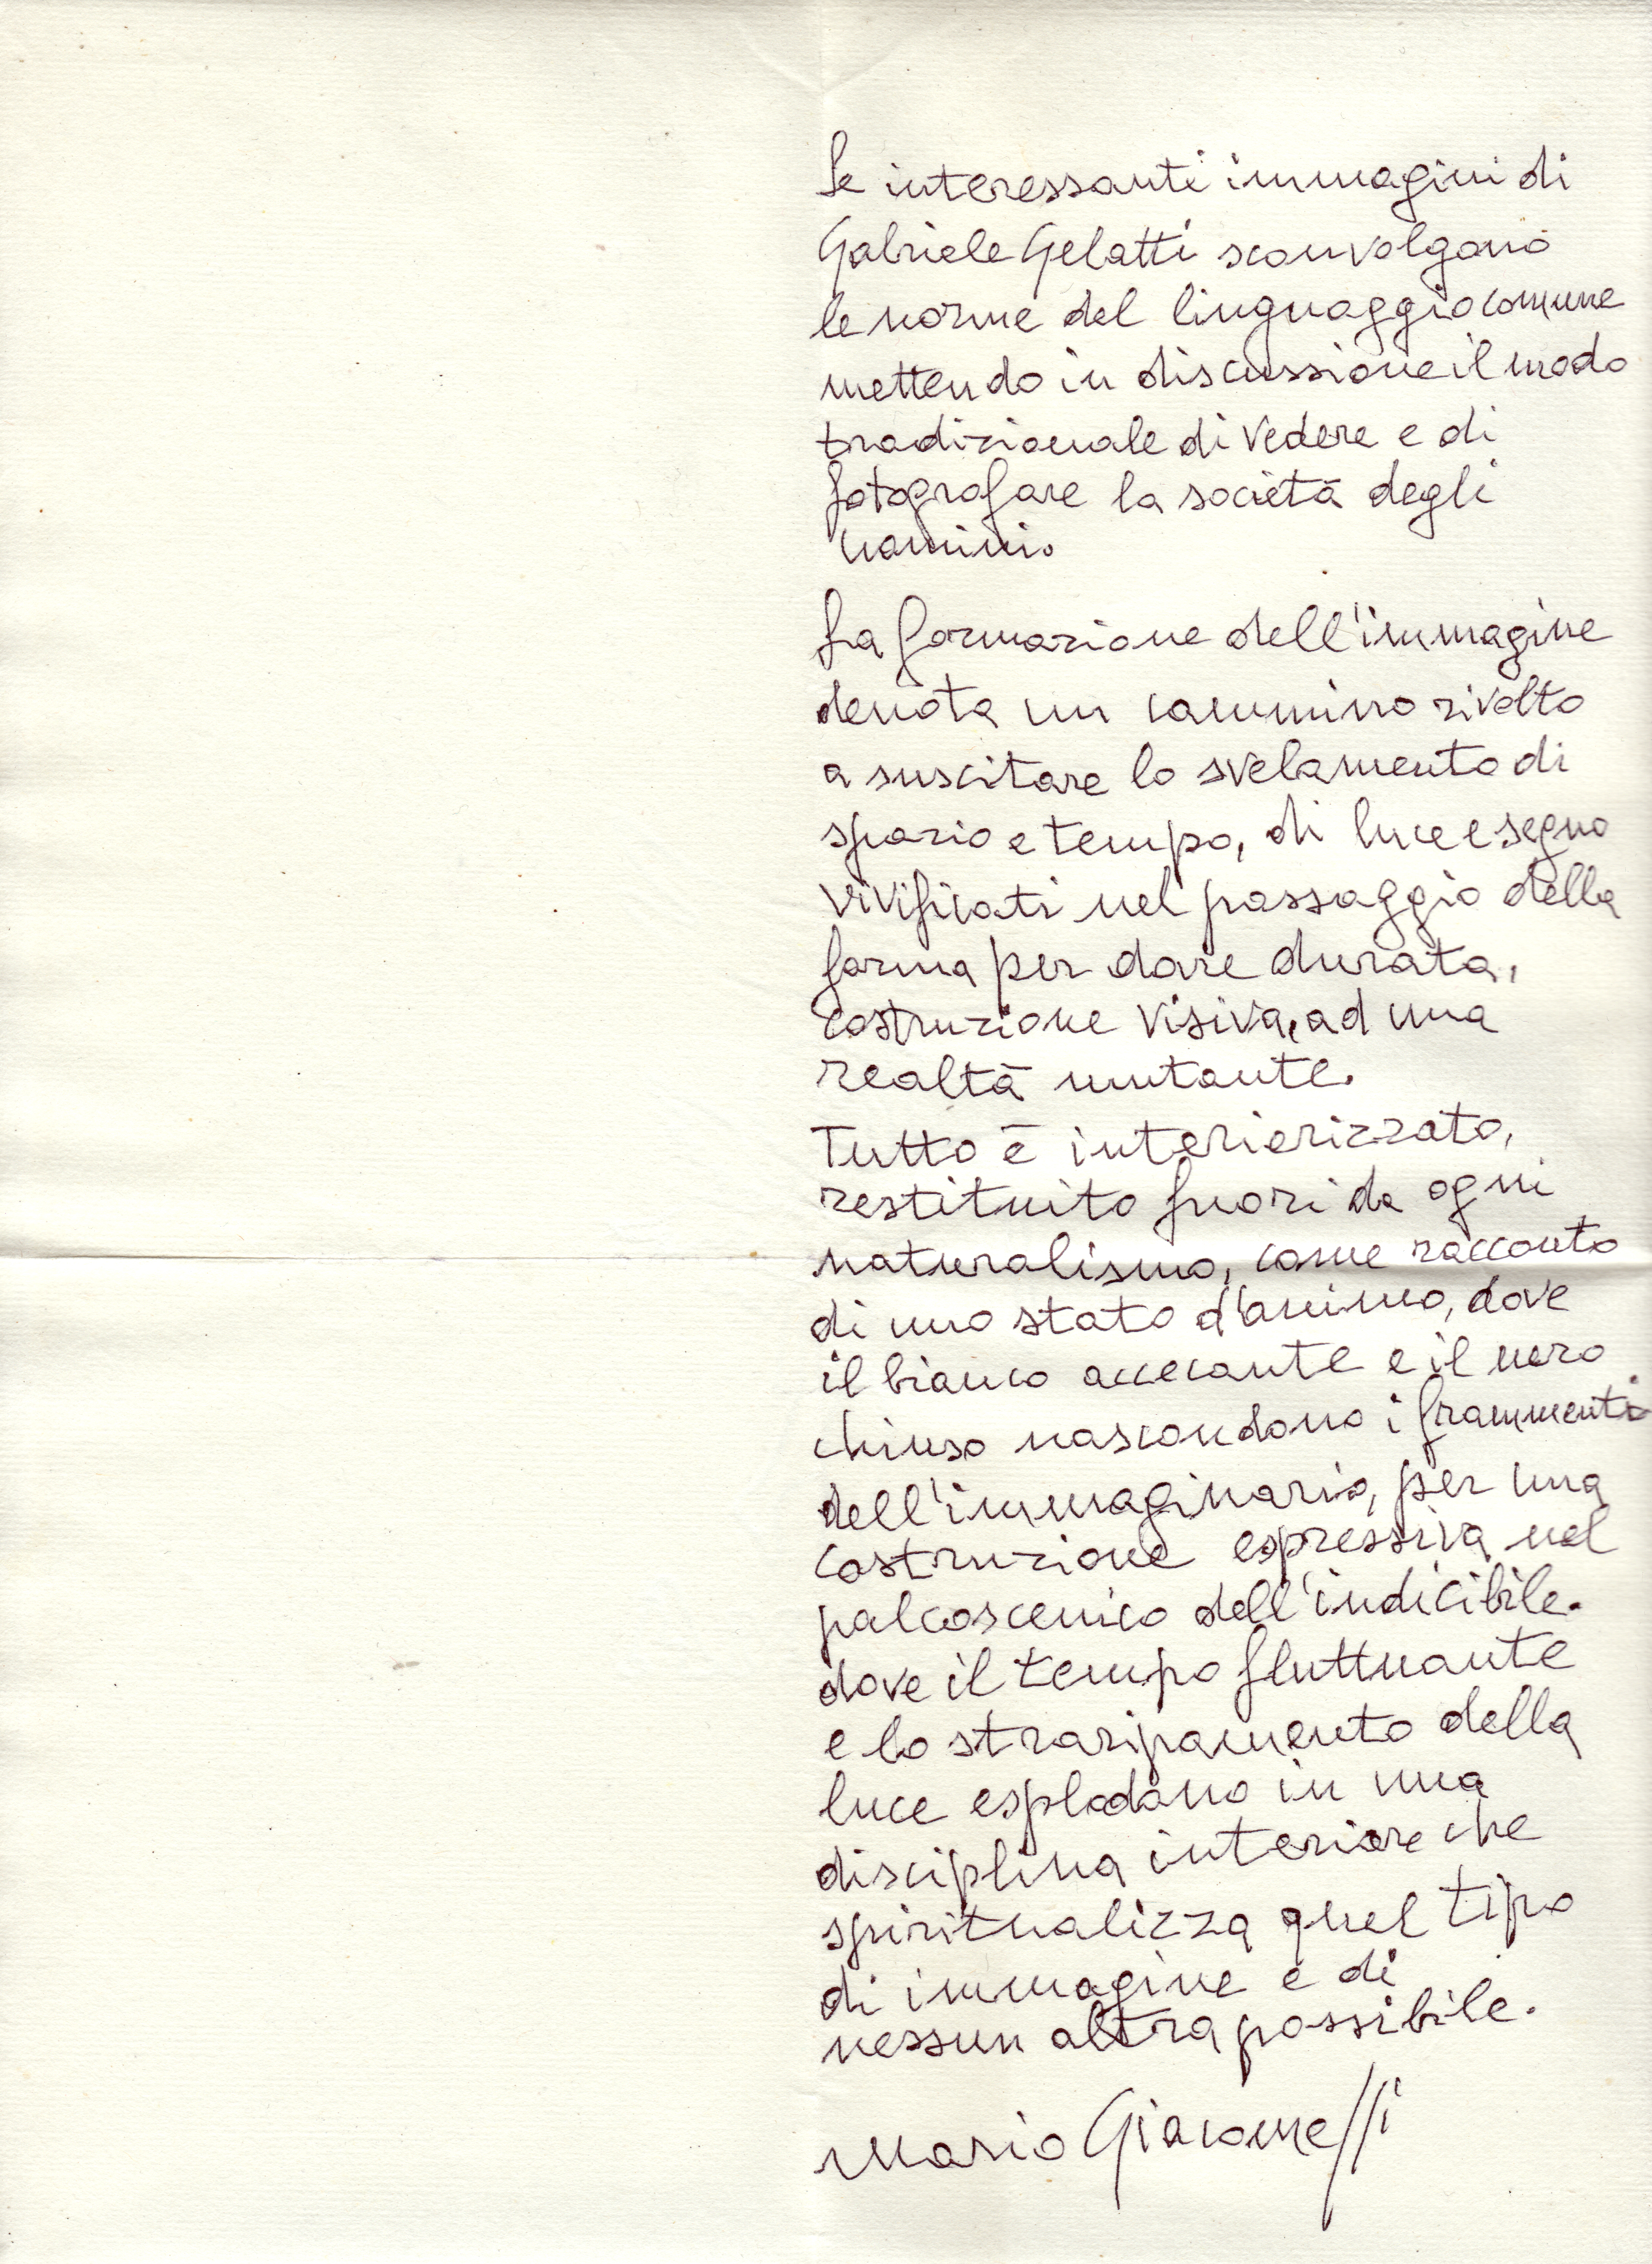 Le interessanti immagini di
Gabriele Gelatti sconvolgono
le norme del linguaggio comune
mettendo in discussione il modo
tradizionale di vedere e di
fotografare la società degli
uomini.
La formazione dell'immagine
denota un cammino rivolto
a suscitare lo svelamento di
spazio e tempo, di luce e segno
vivificati nel passaggio della
forma per dare durata,
costruzione visiva, ad una
realtà mutante.
Tutto è interiorizzato,
restituito fuori da ogni
naturalismo, come racconto
di uno stato d'animo, dove
il bianco accecante e il nero
chiuso nascondono i frammenti
dell'immaginario, per una
costruzione espressiva nel
palcoscenico dell'indicibile.
dove il tempo fluttuante
e lo straripamento della
luce esplodono in una
disciplina interiore che
spiritualizza quel tipo
di immagine e di
nessun altra possibile.
Mario Giacomelli